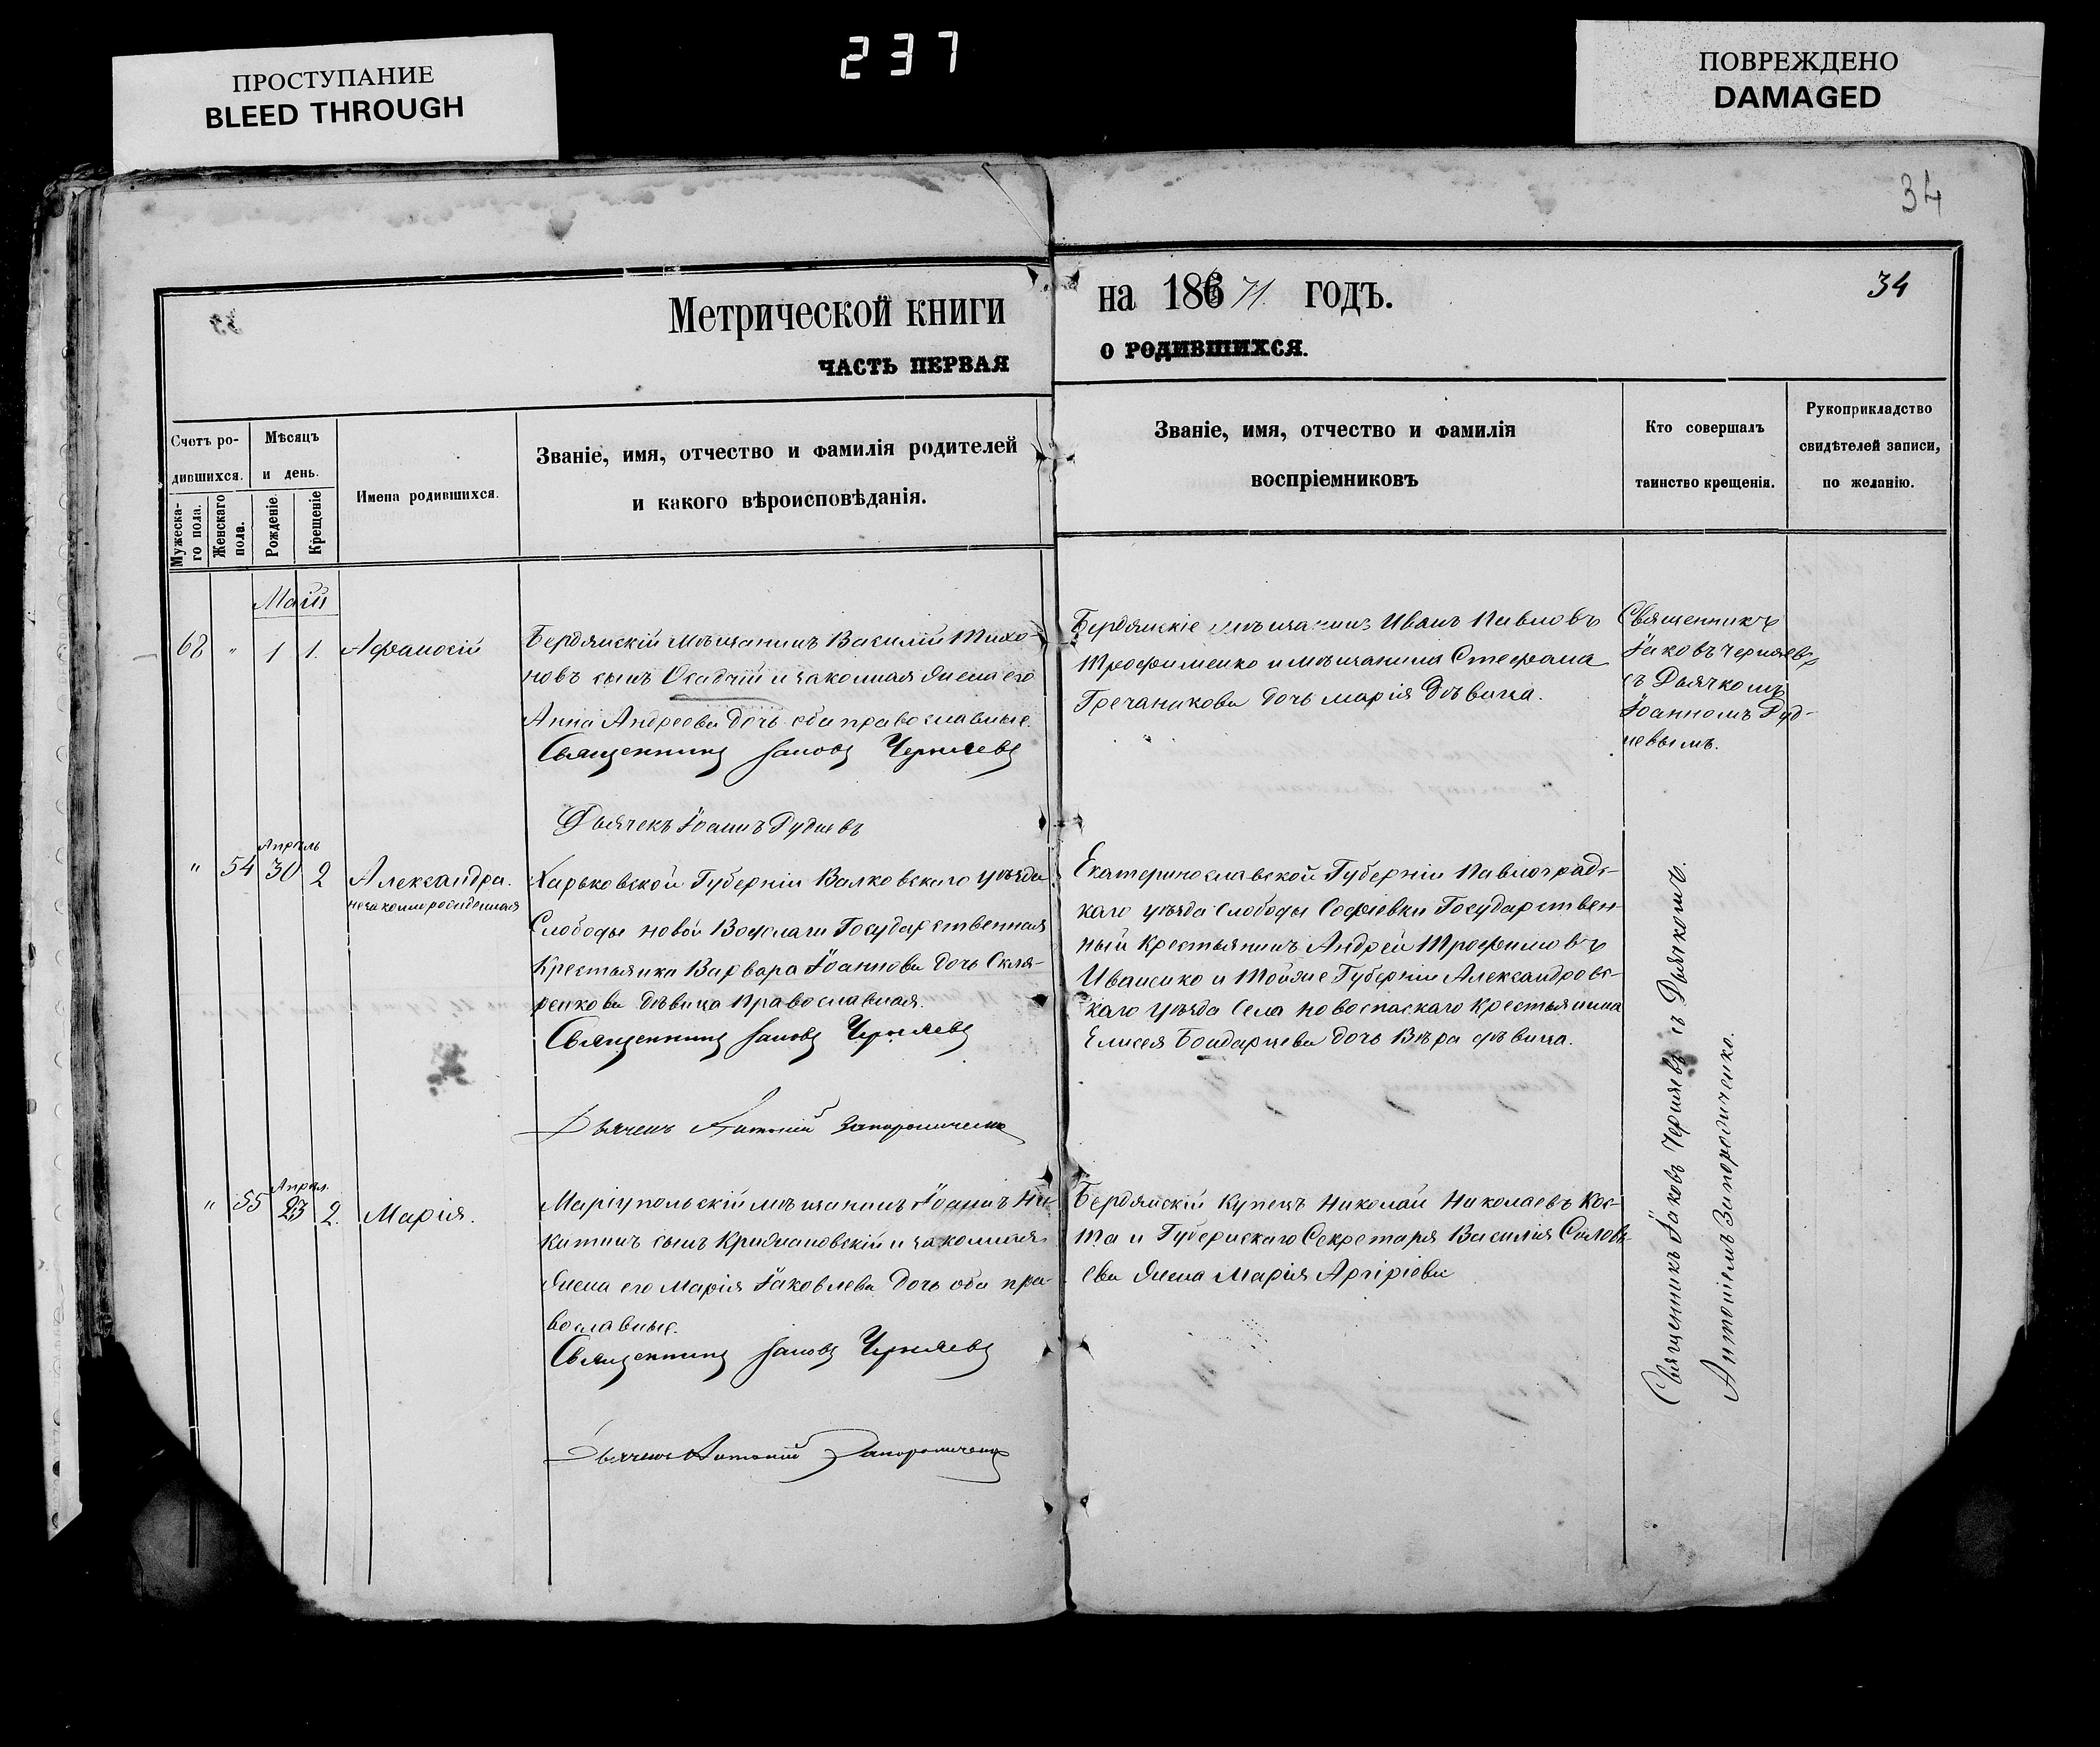 ПРОСТУПАНИЕ
BLEED THROUGH
237
ПОВРЕЖДЕНО
DAMAGED
34
Метрической книги
ЧАСТЬ ПЕРВАЯ
на 186 71. годъ.
О РОДИВШИХСЯ.
34
Счетъ ро-
дившихся.
Мужеска-
го пола.
Женскаго
пола.
Мѣсяцъ
и день.
Рожденіе.
Крещеніе
Имена родившихся.
Званіе, имя, отчество и фамилія родителей
и какого вѣроисповѣданія.
Званіе, имя, отчество и фамилія
воспріемниковъ
Кто совершалъ
таинство крещенія.
Рукоприкладство
свидѣтелей записи,
по желанію.
Маій
68 " 1 1. Афанасій
Бердянскій мѣщанинъ Василій Тихо-
новъ сынъ Осадчій и законная жена его
Анна Андреева дочь оба православные.
Священникъ Іаковъ Черняевъ
Дьячекъ Іоаннъ Рудневъ
Бердянскіе мѣщанинъ Иванъ Павловъ
Трофименко и мѣщанина Стефана
Гречаникова дочь Марія дѣвица.
Священникъ
Іаковъ Черняевъ
съ Дьячкомъ
Іоанномъ Руд-
невымъ.
Апрѣль
" 54 30 2 Александра.
незаконнорожденная
Харьковской Губерніи Валковскаго уѣзда
Слободы новой Водолаги Государственная
Крестьянка Варвара Іоаннова дочь Скля-
ренкова дѣвица Православная.
Священникъ Іаковъ Черняевъ
Дьячекъ Антоній Запорожченко
Екатеринославской Губерніи Павлоградс-
каго уѣзда Слободы Софіевки Государствен-
ный Крестьянинъ Андрей Трофимовъ
Иваненко и тойже Губерніи Александровс-
каго уѣзда Села новоспаскаго Крестьянина
Елисея Бондарцева дочь Вѣра дѣвица.
Священникъ Іаковъ Черняевъ съ Дьячкомъ
Антоніемъ Запорожченко.
Апрѣл.
" 55 23 2. Марія.
Маріупольскій мѣщанинъ Іоаннъ Ни-
китинъ сынъ Крижановскій и законная
жена его Марія Іаковлева дочь оба пра-
вославные.
Священникъ Іаковъ Черняевъ
Дьячекъ Антоній Запорожченко
Бердянскій купецъ Николай Николаевъ Кос-
та и Губернскаго Секретаря Василія Соловь
ева жена Марія Аргиріева